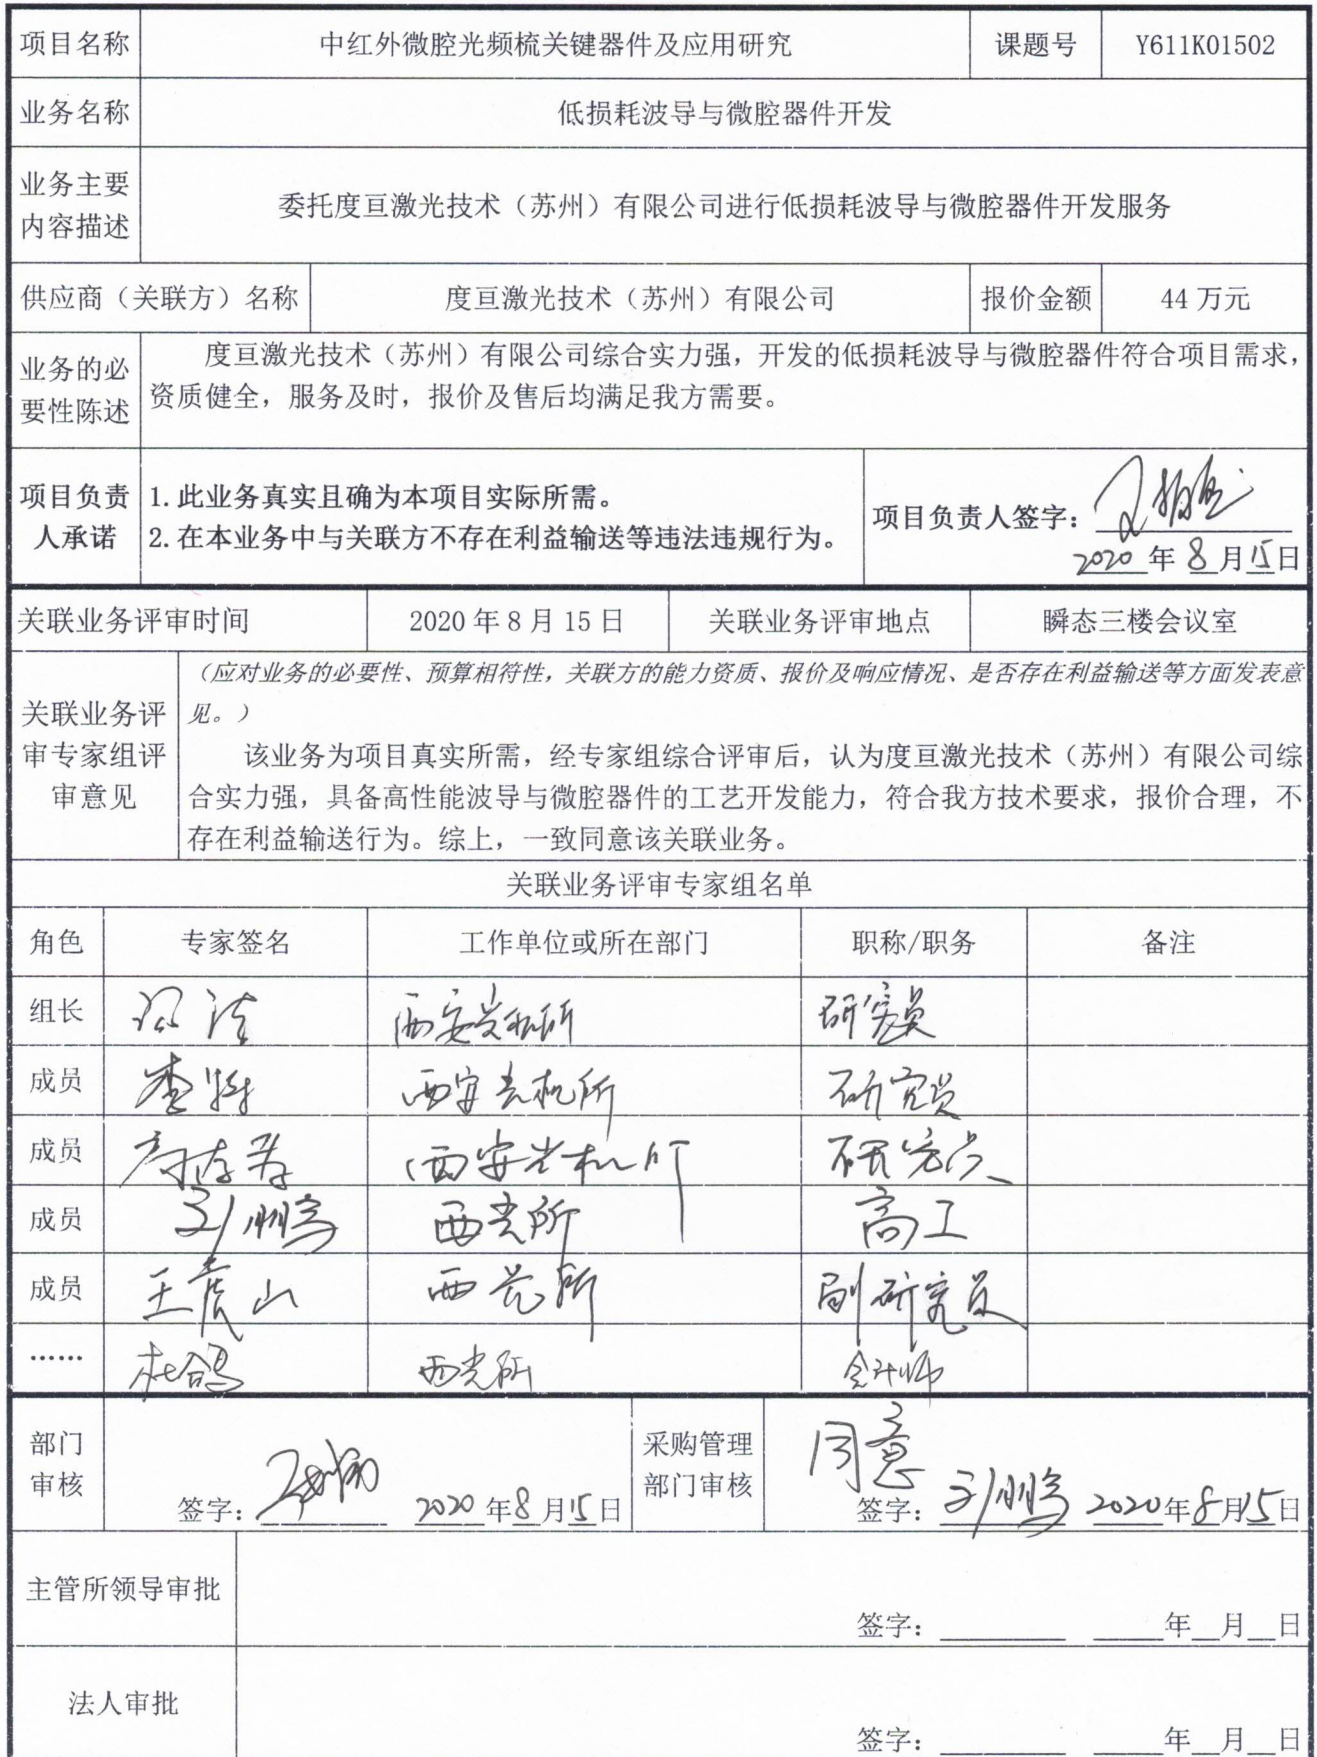 项目名称 中红外微腔光频梳关键器件及应用研究 课题号 Y611K01502
业务名称 低损耗波导与微腔器件开发
业务主要
内容描述
委托度亘激光技术（苏州）有限公司进行低损耗波导与微腔器件开发服务
供应商（关联方）名称 度亘激光技术（苏州）有限公司 报价金额 44 万元
业务的必
要性陈述
度亘激光技术（苏州）有限公司综合实力强，开发的低损耗波导与微腔器件符合项目需求，
资质健全，服务及时，报价及售后均满足我方需要。
项目负责
人承诺
1. 此业务真实且确为本项目实际所需。
2. 在本业务中与关联方不存在利益输送等违法违规行为。
项目负责人签字：
2020 年 8 月 15 日
关联业务评审时间 2020 年 8 月 15 日 关联业务评审地点 瞬态三楼会议室
关联业务评
审专家组评
审意见
（应对业务的必要性、预算相符性，关联方的能力资质、报价及响应情况、是否存在利益输送等方面发表意
见。）
该业务为项目真实所需，经专家组综合评审后，认为度亘激光技术（苏州）有限公司综
合实力强，具备高性能波导与微腔器件的工艺开发能力，符合我方技术要求，报价合理，不
存在利益输送行为。综上，一致同意该关联业务。
关联业务评审专家组名单
角色 专家签名 工作单位或所在部门 职称/职务 备注
组长 西安光机所 研究员
成员 西安光机所 研究员
成员 西安光机所 研究员
成员 刘鹏 西光所 高工
成员 王虎山 西光所 副研究员
…… 杜鸽 西光所 会计师
部门
审核
签字： 2020 年 8 月 15 日
采购管理
部门审核
同意
签字： 刘鹏 2020 年 8 月 15 日
主管所领导审批
签字： 年 月 日
法人审批
签字： 年 月 日